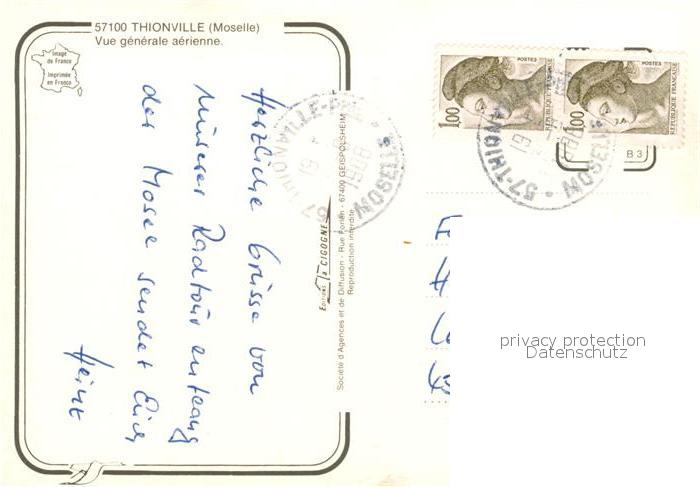 57100 THIONVILLE (Moselle)
Vue générale aérienne.
Image
de France
Imprimée
en France
Herzliche Grüsse von
unserer Radtour entlang
der Mosel sendet Euch
EDITIONS la CIGOGNE
Société d'Agences et de Diffusion - Rue Forlen - 67400 GEISPOLSHEIM
Reproduction interdite
57 THIONVILLE-PPAL
MOSELLE
POSTES
1,00
REPUBLIQUE FRANÇAISE
POSTES
1,00
REPUBLIQUE FRANÇAISE
57-THIONVILLE
MOSELLE
B 3
privacy protection
Datenschutz